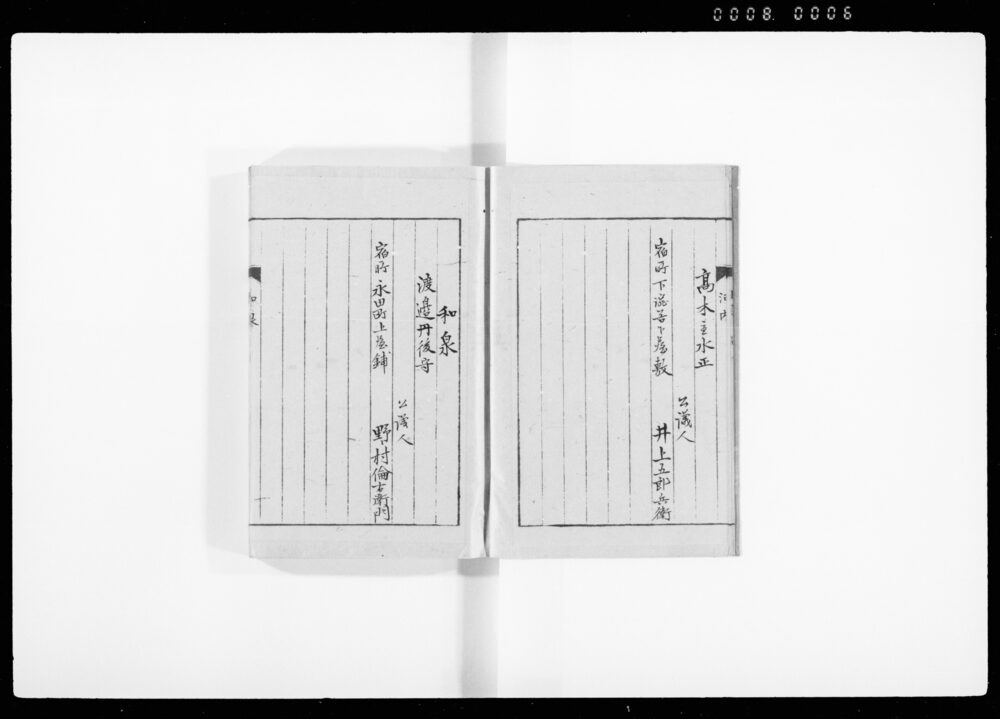 0008. 0006
河内
高木主水正
公議人
宿所下澁谷下屋敷 井上五郎兵衛
和泉
渡邉丹後守
公議人
宿所永田町上屋鋪 野村倫右衛門
和泉